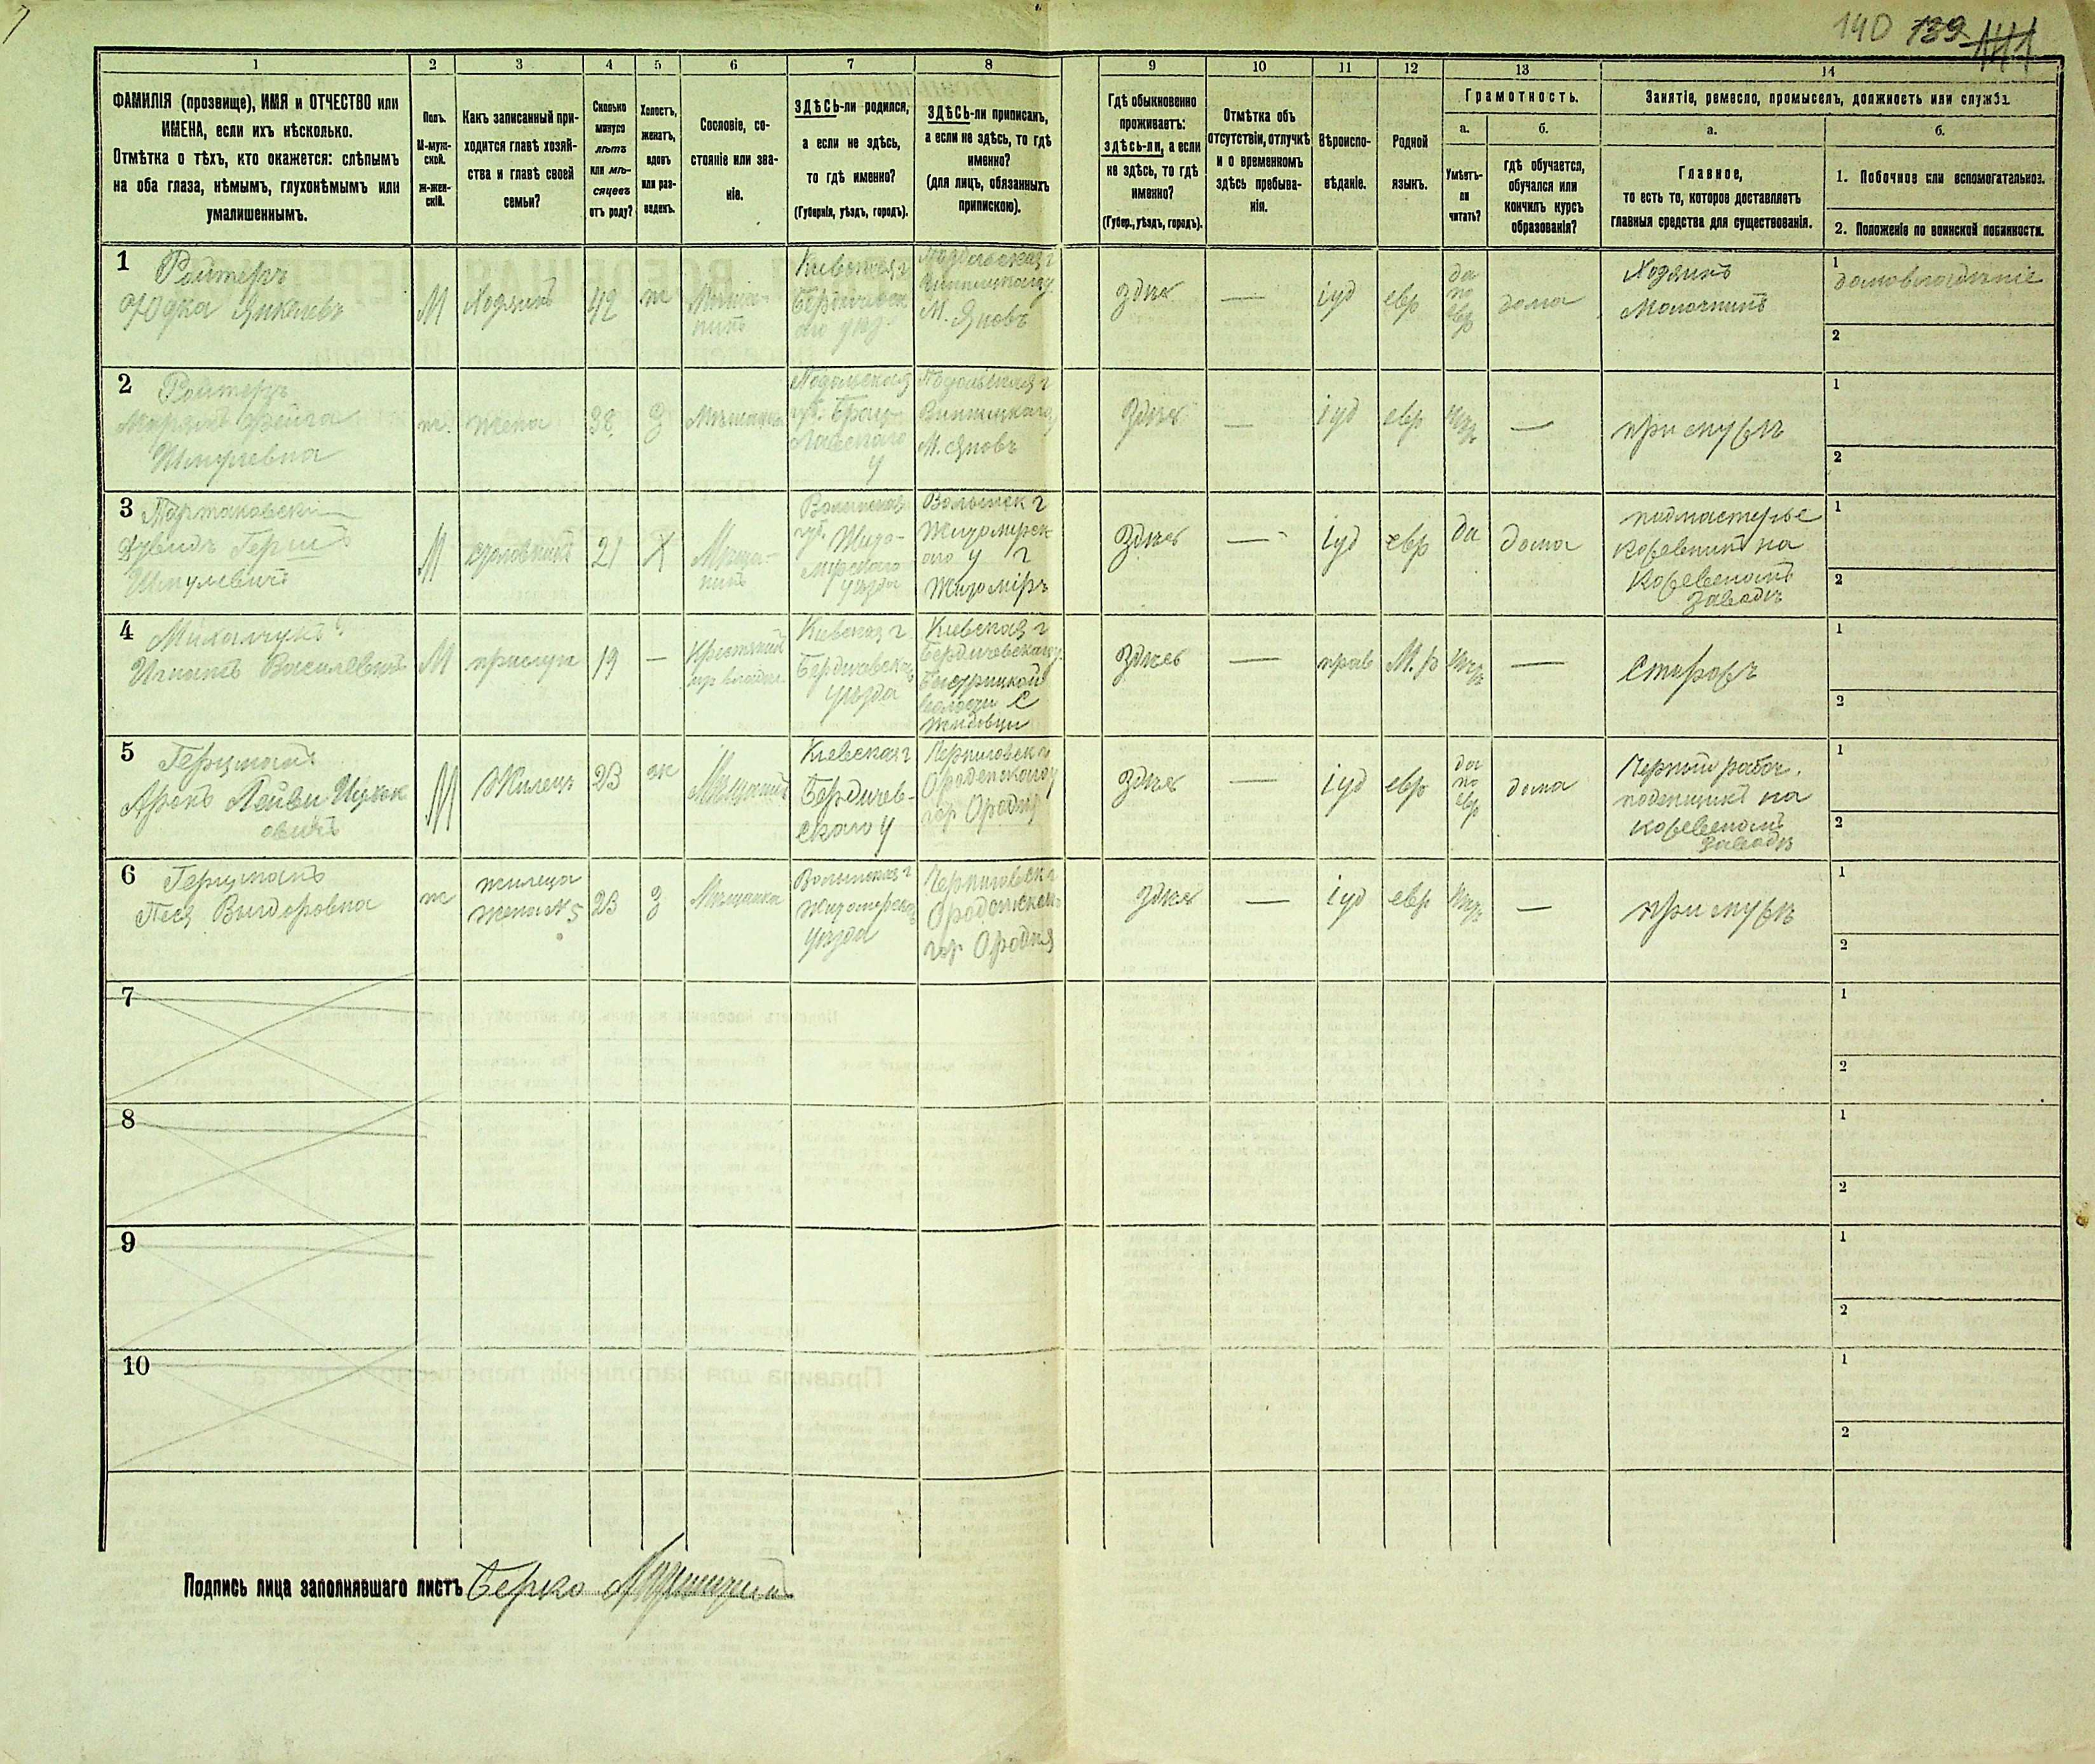 140 139 141
1 2 3 4 5 6 7 8 9 10 11 12 13 14
ФАМИЛІЯ (прозвище), ИМЯ и ОТЧЕСТВО или
ИМЕНА, если ихъ нѣсколько.
Отмѣтка о тѣхъ, кто окажется: слѣпымъ
на оба глаза, нѣмымъ, глухонѣмымъ или
умалишеннымъ.
Полъ.
М-муж-
ской.
ж-жен-
скій.
Какъ записанный при-
ходится главѣ хозяй-
ства и главѣ своей
семьи?
Сколько
минуло
лѣтъ
или мѣ-
сяцевъ
отъ роду?
Холостъ,
женатъ,
вдовъ
или раз-
веденъ.
Сословіе, со-
стояніе или зва-
ніе.
ЗДѢСЬ-ли родился,
а если не здѣсь,
то гдѣ именно?
(Губернія, уѣздъ, городъ).
ЗДѢСЬ-ли приписанъ,
а если не здѣсь, то гдѣ
именно?
(для лицъ, обязанныхъ
припискою).
Гдѣ обыкновенно
проживаетъ:
здѣсь-ли, а если
не здѣсь, то гдѣ
именно?
(Губер., уѣздъ, городъ).
Отмѣтка объ
отсутствіи, отлучкѣ
и о временномъ
здѣсь пребыва-
нія.
Вѣроиспо-
вѣданіе.
Родной
языкъ.
Грамотность.
а.
Умѣетъ-
ли
читать?
б.
гдѣ обучается,
обучался или
кончилъ курсъ
образованія?
Занятіе, ремесло, промыселъ, должность или служба.
а.
Главное,
то есть то, которое доставляетъ
главныя средства для существованія.
б.
1. Побочное или вспомогательное.
2. Положеніе по воинской повинности.
1
Ройтеръ
Юдка Янкелевъ
М
Хозяинъ
42
ж
Мѣща-
нинъ
Кіевская г
Бердичевск
аго уѣз.
Подольская г
Винницкаго у
М. Яновъ
здѣсь
—
іуд
евр
да
по
евр
дома
Хозяинъ
Молочникъ
1
домовладѣніе
2
2
Ройтеръ
Марьямъ Фейга
Шмулевна
ж.
жена
38
З
Мѣщанка
Подольская
губ. Брац-
лавскаго
у
Подольская г
Винницкаго у
М. Яновъ
здѣсь
—
іуд
евр
нѣтъ
—
при мужѣ
1
2
3
Дувидъ Герш
Шмулевичъ
М
21
Х
Мѣща-
нинъ
Волынская
губ. Жито-
мірскаго
уѣзда
Волынск г
Житомірск
аго у г
Житоміръ
здѣсь
—
іуд
евр
да
дома
подмастерье
Кожевникъ на
Кожевеномъ
заводѣ
1
2
4
Михальчукъ
Игнатъ Василевичъ
М
прислуг
19
—
Кіевская г
Бердичевскаго
уѣзда
Кіевская г
Бердичевскаго у
Быстрицкой
волости С
Жидовци
здѣсь
—
прав
М. р
нѣтъ
—
Сторожъ
1
2
5
Герцманъ
Аронъ Лейви Ицьок
овичъ
М
Жилецъ
23
ж
Мѣщанинъ
Кіевская г
Бердичев-
скаго у
Черниговск г
Ороденскаго у
гор Ородня
здѣсь
—
іуд
евр
да
по
евр
дома
Черный рабоч.
поденщикъ на
кожевеномъ
заводѣ
1
2
6
Герцманъ
Песя
ж
жилица
жена № 5
23
З
Мѣщанка
Волынская г
Житомірскаго
уѣзда
Черниговск г
гор Ородня
здѣсь
—
іуд
евр
нѣтъ
—
при мужѣ
1
2
7
1
2
8
1
2
9
1
2
10
1
2
Подпись лица заполнявшаго листъ Берко